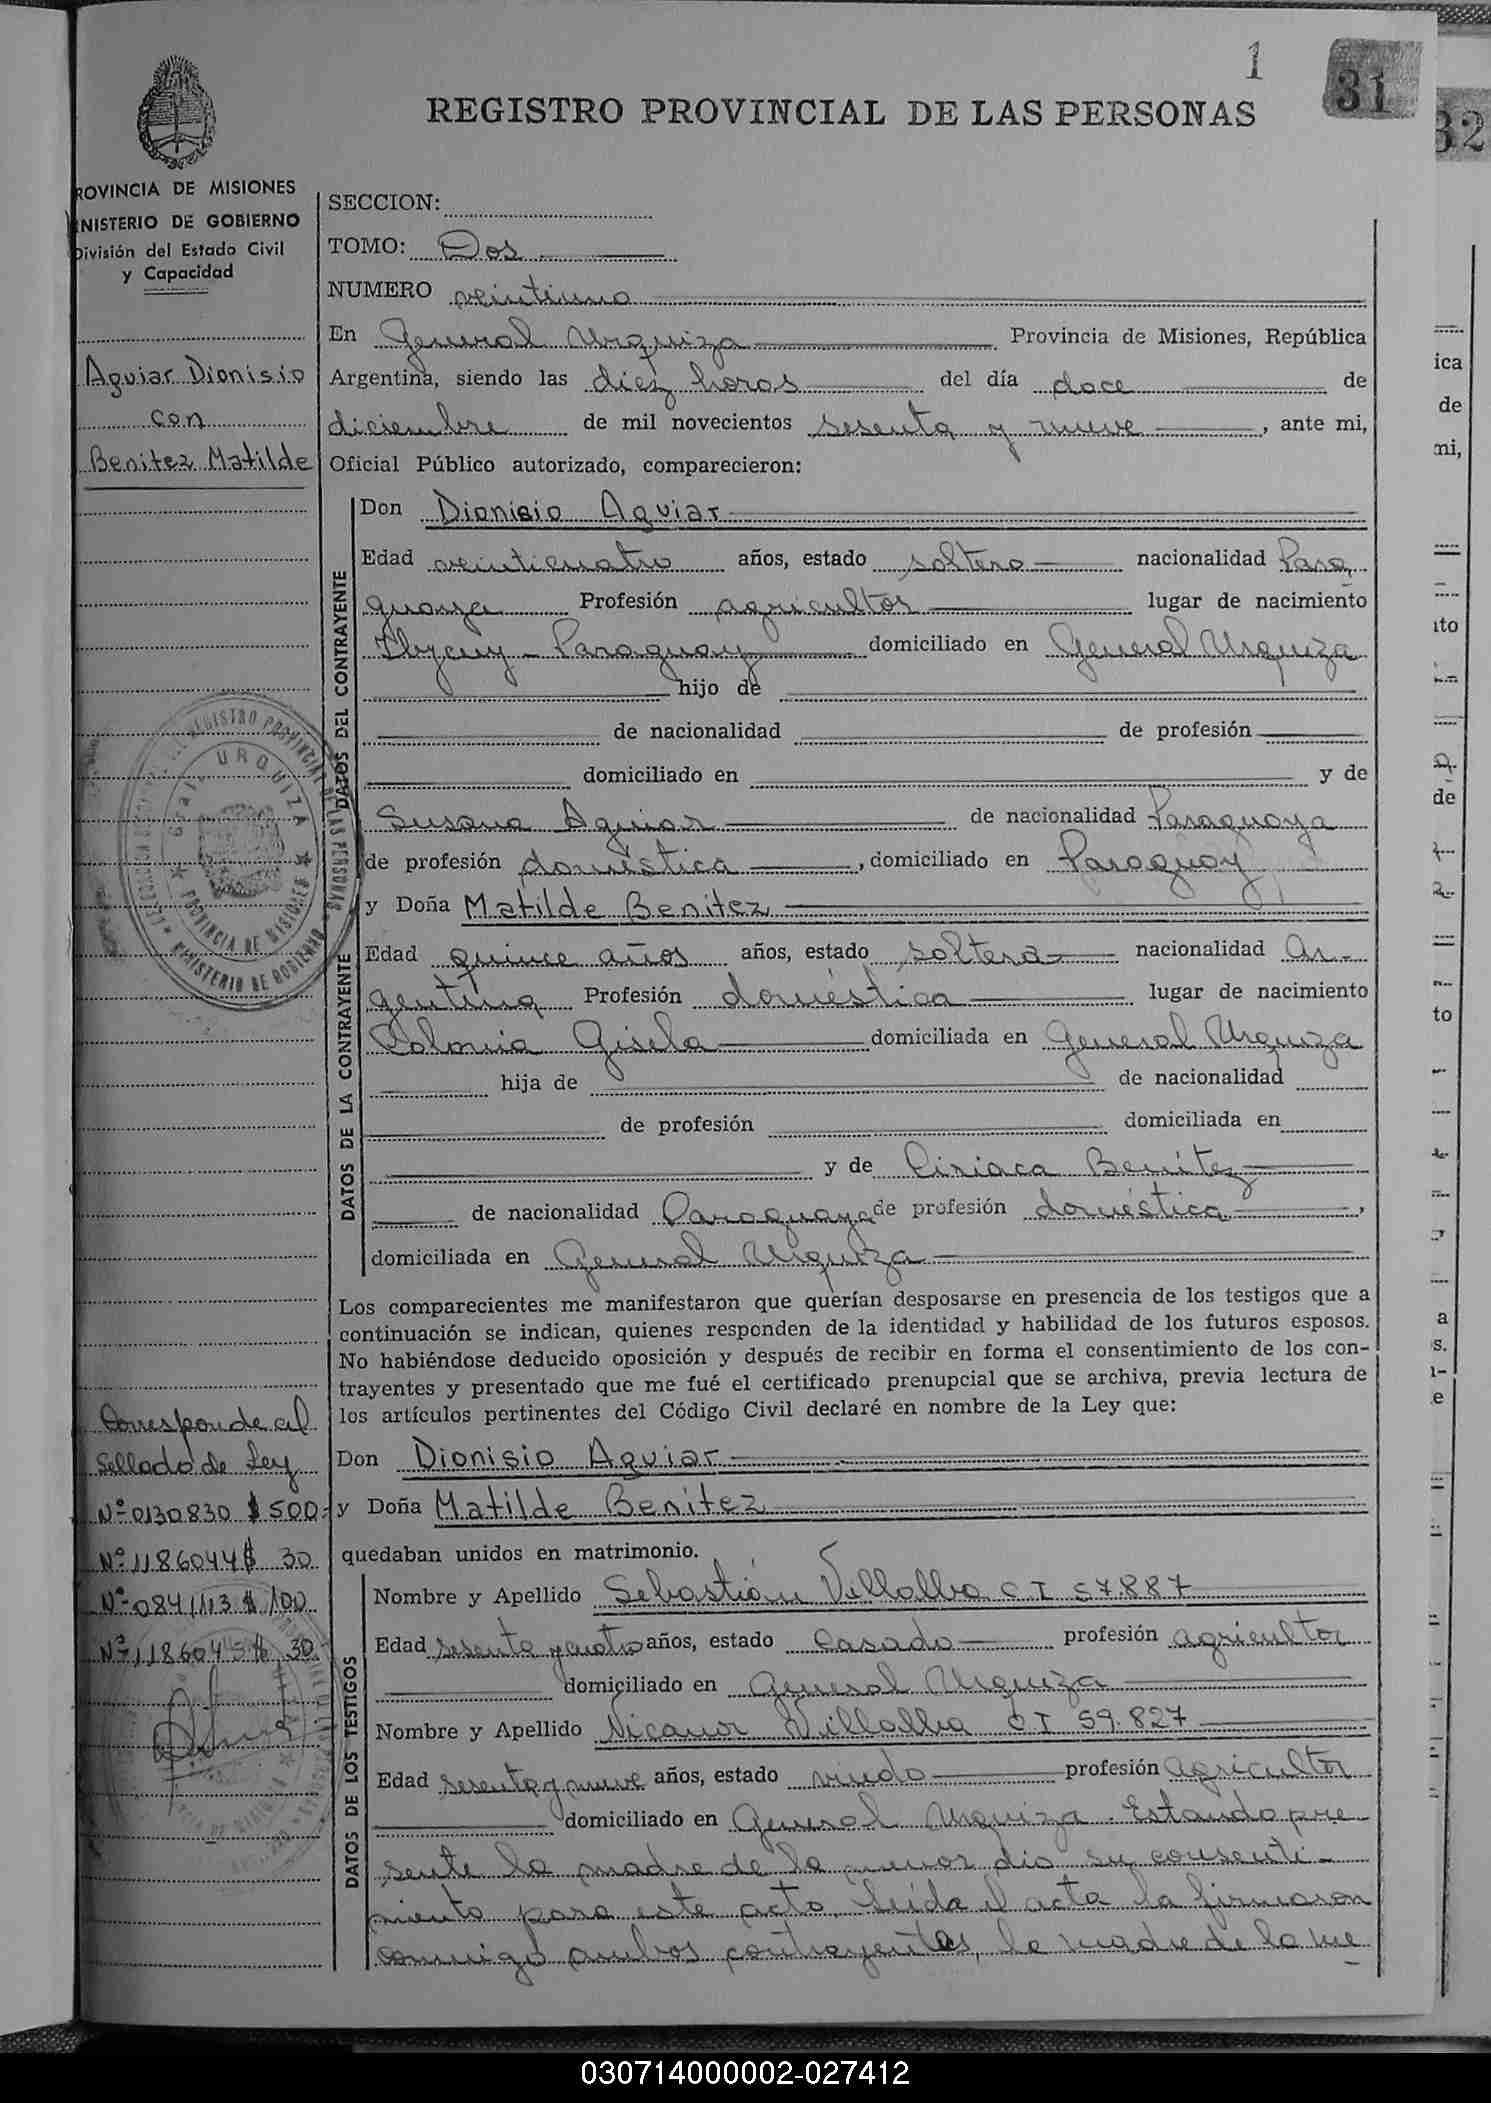 1
31
32
REGISTRO PROVINCIAL DE LAS PERSONAS
ROVINCIA DE MISIONES
NISTERIO DE GOBIERNO
División del Estado Civil
y Capacidad
Aguiar Dionisio
con
Benitez Matilde
SECCION:
TOMO: Dos
NUMERO veintiuno
En General Urquiza Provincia de Misiones, República
Argentina, siendo las diez horas del día doce de
diciembre de mil novecientos sesenta y nueve, ante mi,
Oficial Público autorizado, comparecieron:
DATOS DEL CONTRAYENTE
Don Dionisio Aguiar
Edad veinticuatro años, estado soltero nacionalidad Para
guaya Profesión agricultor lugar de nacimiento
Ybycuy - Paraguay domiciliado en General Urquiza
hijo de
de nacionalidad de profesión
domiciliado en y de
Susana Aguiar de nacionalidad Paraguaya
de profesión doméstica, domiciliado en Paraguay
DATOS DE LA CONTRAYENTE
y Doña Matilde Benitez
Edad quince años años, estado soltera nacionalidad Ar-
gentina Profesión doméstica lugar de nacimiento
Colonia Gisela domiciliada en General Urquiza
hija de de nacionalidad
de profesión domiciliada en
y de Ciriaca Benítez
de nacionalidad Paraguaya de profesión doméstica,
domiciliada en General Urquiza
Los comparecientes me manifestaron que querían desposarse en presencia de los testigos que a
continuación se indican, quienes responden de la identidad y habilidad de los futuros esposos.
No habiéndose deducido oposición y después de recibir en forma el consentimiento de los con-
trayentes y presentado que me fué el certificado prenupcial que se archiva, previa lectura de
los artículos pertinentes del Código Civil declaré en nombre de la Ley que:
Don Dionisio Aguiar
y Doña Matilde Benitez
quedaban unidos en matrimonio.
Corresponde al
Sellado de Ley
Nº 0130830 $ 500.-
Nº 1186044 $ 30
Nº 0841113 $ 100
Nº 1186045 $ 30.-
DATOS DE LOS TESTIGOS
Nombre y Apellido Sebastián Villalba C I 57.887
Edad sesenta y cuatro años, estado Casado profesión agricultor
domiciliado en General Urquiza
Nombre y Apellido Nicanor Villalba C I 59.827
Edad sesenta y nueve años, estado viudo profesión agricultor
domiciliado en General Urquiza. Estando pre
sente la madre de la menor dio su consenti-
miento para este acto. Leída el acta la firmaron
conmigo ambos contrayentes, la madre de la me
REGISTRO PROVINCIAL DE LAS PERSONAS
Gral. URQUIZA
PROVINCIA DE MISIONES
MINISTERIO DE GOBIERNO
030714000002-027412